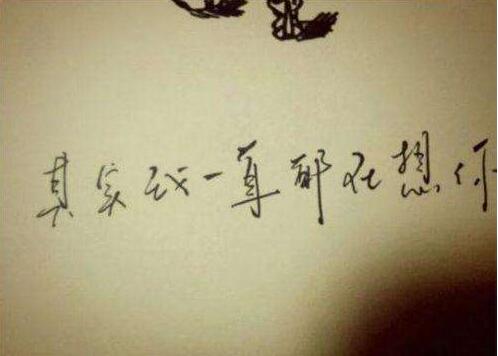 其实我一直都在想你